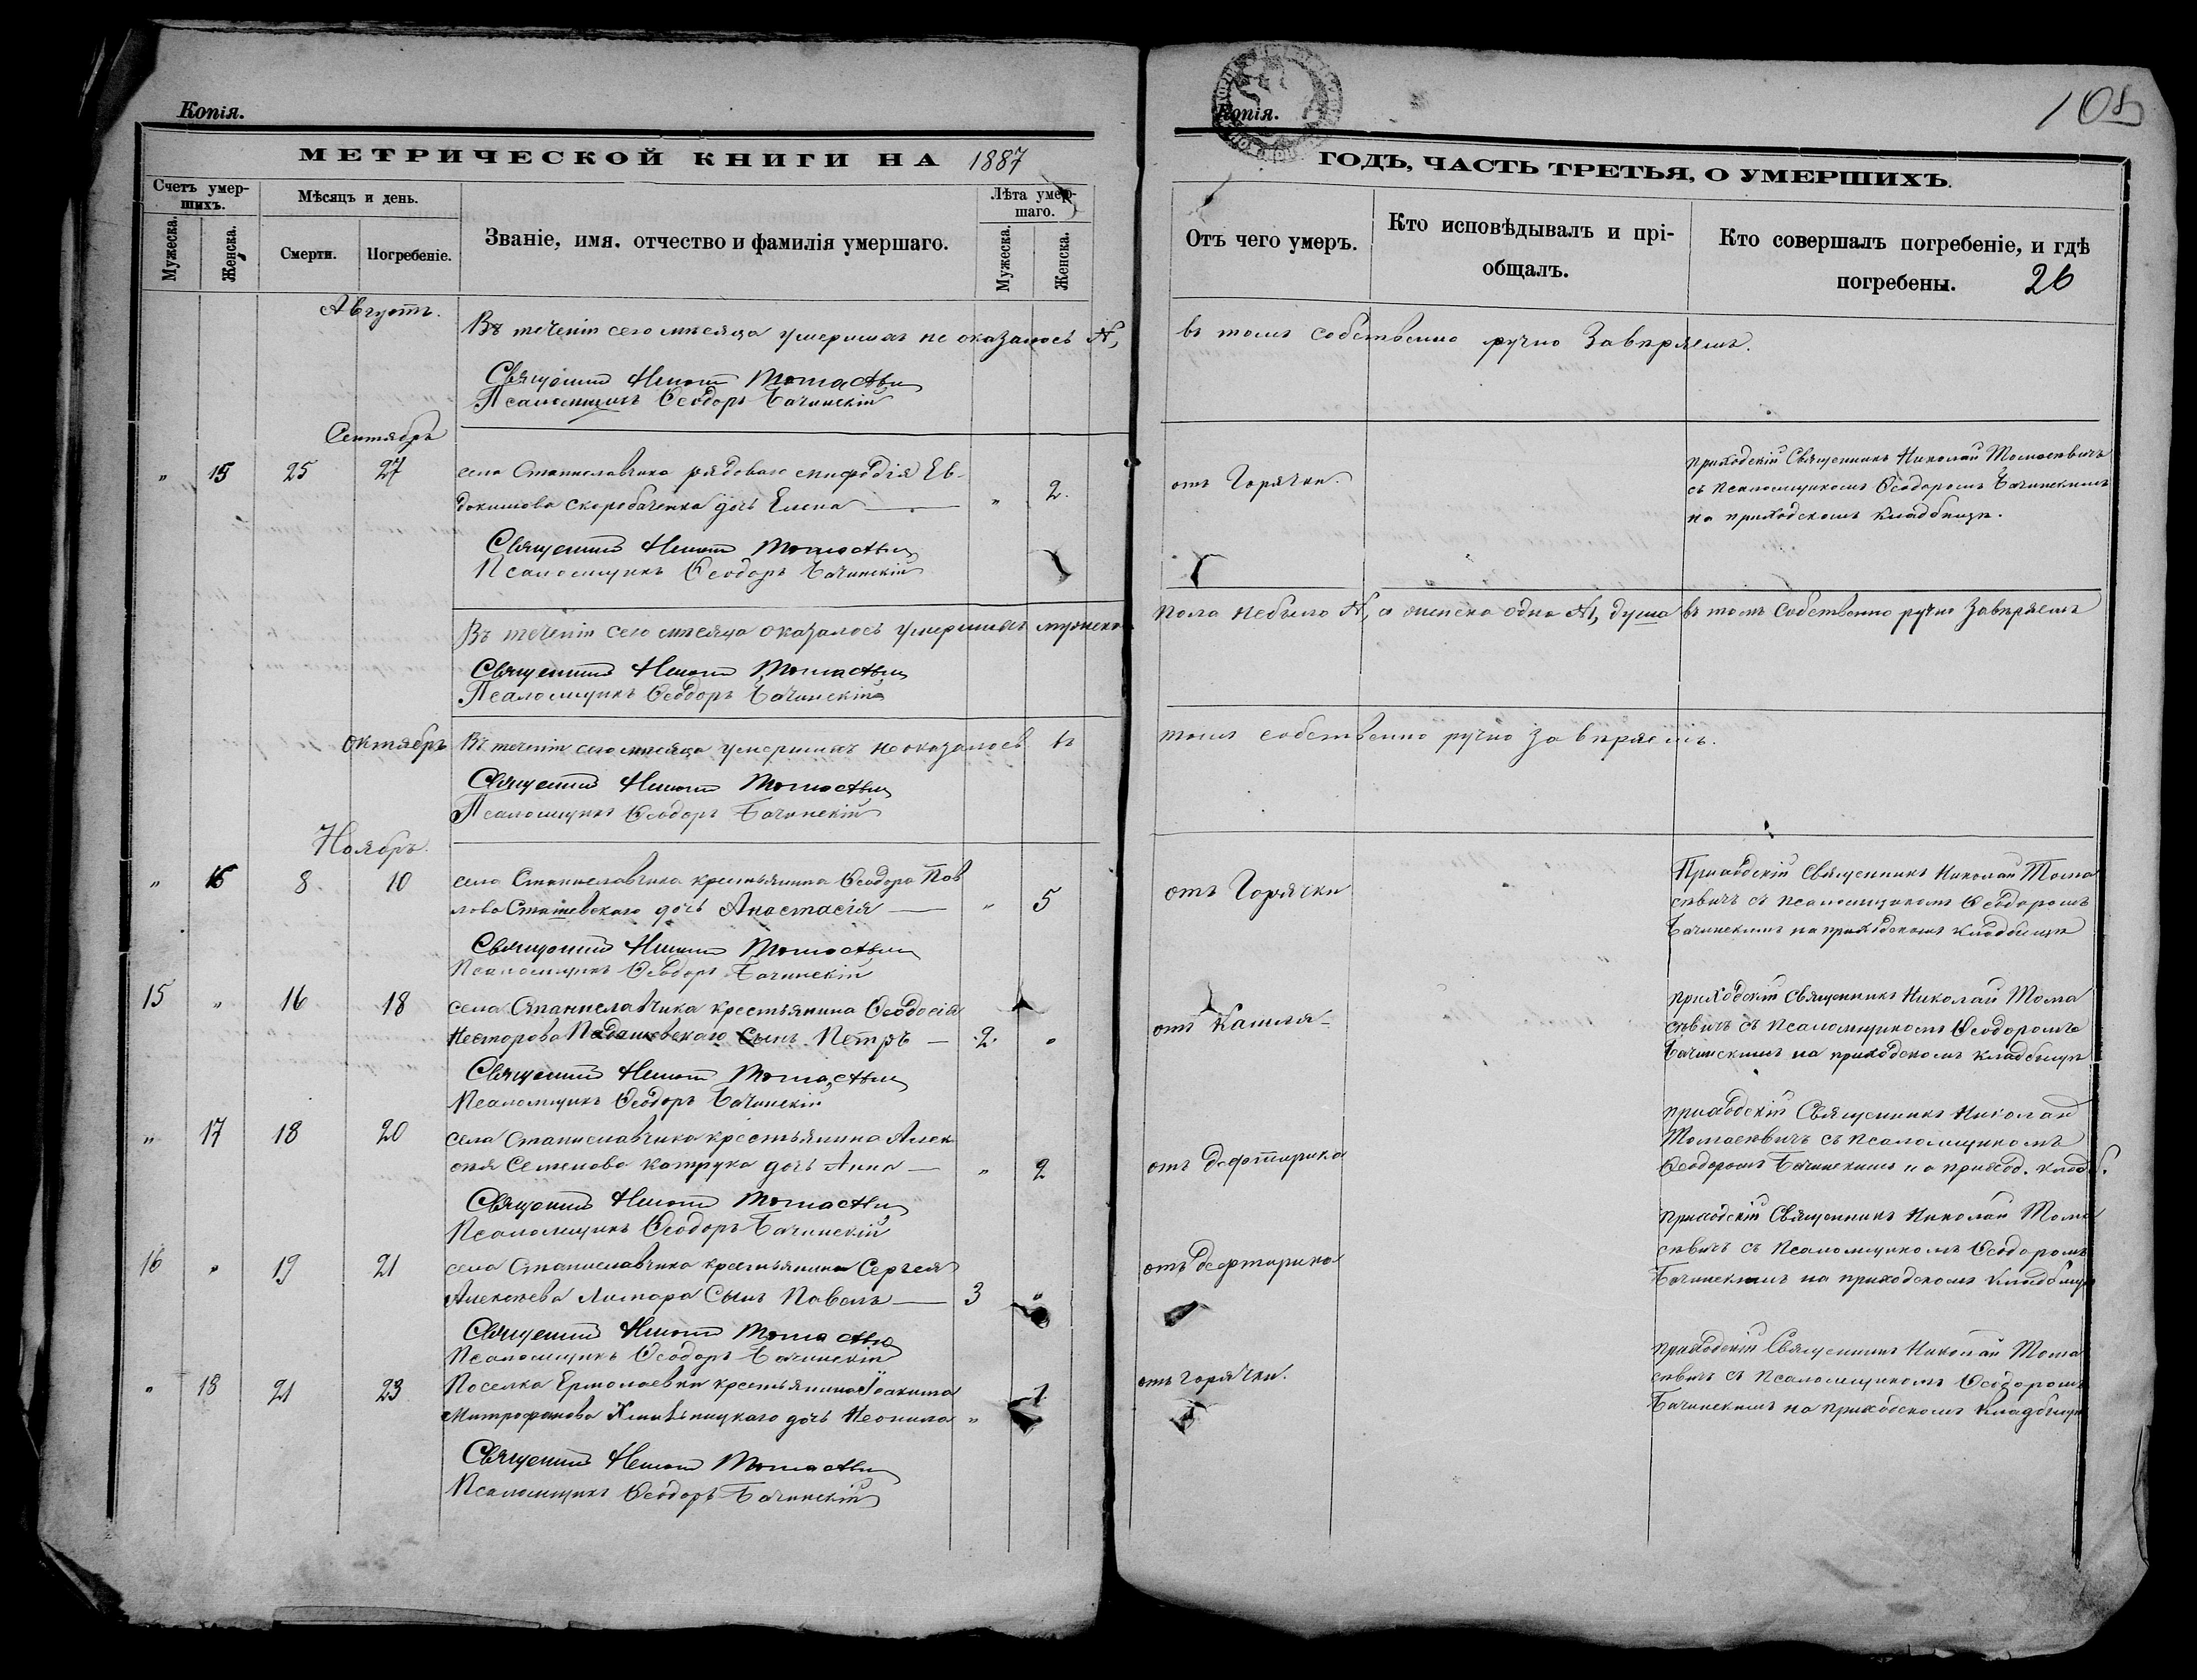 Копія.
МЕТРИЧЕСКОЙ КНИГИ НА 1887
Счетъ умер-
шихъ.
Мѣсяцъ и день.
Званіе, имя. отчество и фамилія умершаго.
Лѣта умер-
шаго.
Мужеска.
Женска.
Смерти.
Погребеніе.
Мужеска.
Женска.
Августъ.
Въ теченіи сего мѣсяца умершихъ не оказалось №,
Священникъ Томасевич
Псаломщикъ Ѳеодоръ Бачинскій
Сентябрь
„ 15 25 27 села Станиславчика рядоваго Епифодія Ев-
докимова Скоробаченка дочь Елена — „ 2.
Священникъ Томасевич
Псаломщикъ Ѳеодоръ Бачинскій
Въ теченіи сего мѣсяца оказалось умершихъ мужеска
Священникъ Томасевич
Псаломщикъ Ѳеодоръ Бачинскій
Октябрь Въ теченіи сего мѣсяца умершихъ не оказалось въ
Священникъ Томасевич
Псаломщикъ Ѳеодоръ Бачинскій
Ноябрь.
„ 16 8 10 села Станиславчика крестьянина Ѳеодора Пав
лова Сташевскаго дочь Анастасія — „ 5
Священникъ Томасевич
Псаломщикъ Ѳеодоръ Бачинскій
15 „ 16 18 села Станиславчика крестьянина Ѳеодосія
Несторова сынъ Петръ — 2. „
Священникъ Томасевич
Псаломщикъ Ѳеодоръ Бачинскій
„ 17 18 20 села Станиславчика крестьянина Алек
сѣя Семенова Катрука дочь Анна — „ 2
Священникъ Томасевич
Псаломщикъ Ѳеодоръ Бачинскій
16 „ 19 21 села Станиславчика крестьянина Сергея
Алексѣева Литара Сынъ Павелъ — 3 „
Священникъ Томасевич
Псаломщикъ Ѳеодоръ Бачинскій
„ 18 21 23 Поселка Ермолаевки крестьянина Іоакима
Митрофанова Хмивницкаго дочь Неонила „ 1.
Священникъ Томасевич
Псаломщикъ Ѳеодоръ Бачинскій
Копія.
108
ГОДЪ, ЧАСТЬ ТРЕТЬЯ, О УМЕРШИХЪ.
Отъ чего умеръ.
Кто исповѣдывалъ и прі-
общалъ.
Кто совершалъ погребеніе, и гдѣ
погребены. 26
въ томъ собственно ручно Завѣряемъ.
отъ Горячки.
приходскій Священникъ Николай Томасевичъ
съ Псаломщикомъ Ѳеодоромъ Бачинскимъ
на приходскомъ кладбищѣ.
пола небыло №, а женска одна №, душа въ томъ Собственно ручно Завѣряемъ
томъ собственно ручно завѣряемъ.
отъ Горячки
Приходскій Священникъ Николай Тома
севичъ съ псаломщикомъ Ѳеодоромъ
Бачинскимъ на приходскомъ кладбищѣ
отъ Кашля
приходскій Священникъ Николай Тома
севичъ съ Псаломщикомъ Ѳеодоромъ
Бачинскимъ на приходскомъ кладбищѣ
отъ Дефтирика
приходскій Священникъ Николай
Томасевичъ съ псаломщикомъ
Ѳеодоромъ Бачинскимъ на приход. кладб.
отъ дефтирика
приходскій Священникъ Николай Тома
севичъ съ Псаломщикомъ Ѳеодоромъ
Бачинскимъ на приходскомъ кладбищѣ
отъ горячки.
приходскій Священникъ Николай Тома
севичъ съ Псаломщикомъ Ѳеодоромъ
Бачинскимъ на приходскомъ кладбищѣ